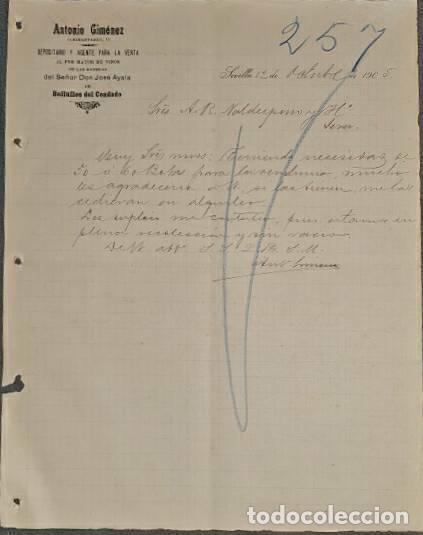 Antonio Giménez
DEPOSITARIO Y AGENTE PARA LA VENTA
AL POR MAYOR DE VINOS
DE LAS BODEGAS
del Señor Don José Ayala
DE
Bollullos del Condado
257
Sevilla 12 de Octubre de 1905
Sres A. R. Valdespino y Hº
Jerez
Muy Sres mios: Teniendo necesidad de
50 o 60 Botas para la vendimia, mucho
les agradeceria a V. si las tienen, me las
cedieran en alquiler.
Les suplico me contesten, pues estamos en
plena recolección y sin vacio.
De V. att S. S. Q. B. S. M.
Ant Gimenez
todocoleccion.net